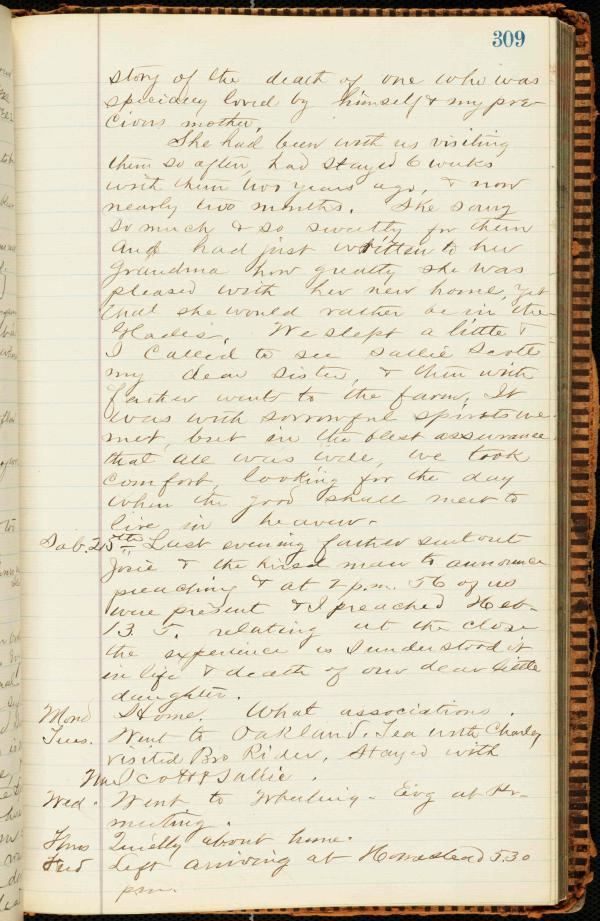 309
story of the death of one who was
specialy loved by himself & my pre-
cious mother,
She had been with us visiting
them so often, had stayed 6 weeks
with them two years ago, & now
nearly two months. She sang
so much & so sweetly for them
and had just written to her
Grandma how greatly she was
pleased with her new home, yet
that she would rather be in the
Glades. We slept a little &
I called to see Sallie Scott
my dear sister, & then with
father went to the farm. It
was with sorrowful spirits we
met, but in the blest assurance
that all was well, we took
comfort, looking for the day
when the good shall meet to
live in heaven.
Sab. 25th Last evening father sent out
Josie & the hired man to announce
preaching & at 2 p.m. 56 of us
were present & I preached Heb-
13. 5. relating at the close
the experience as I understood it
in life & death of our dear little
daughter.
Mond Home. What associations.
Tues. Went to Oakland. Tea with Charley
visited Bro Rider, stayed with
Scott & Sallie.
Wed. Went to Wheeling - Evg at Pr-
meeting.
Thurs Quietly about home.
Frid Left arriving at Homestead 5.30
pm.